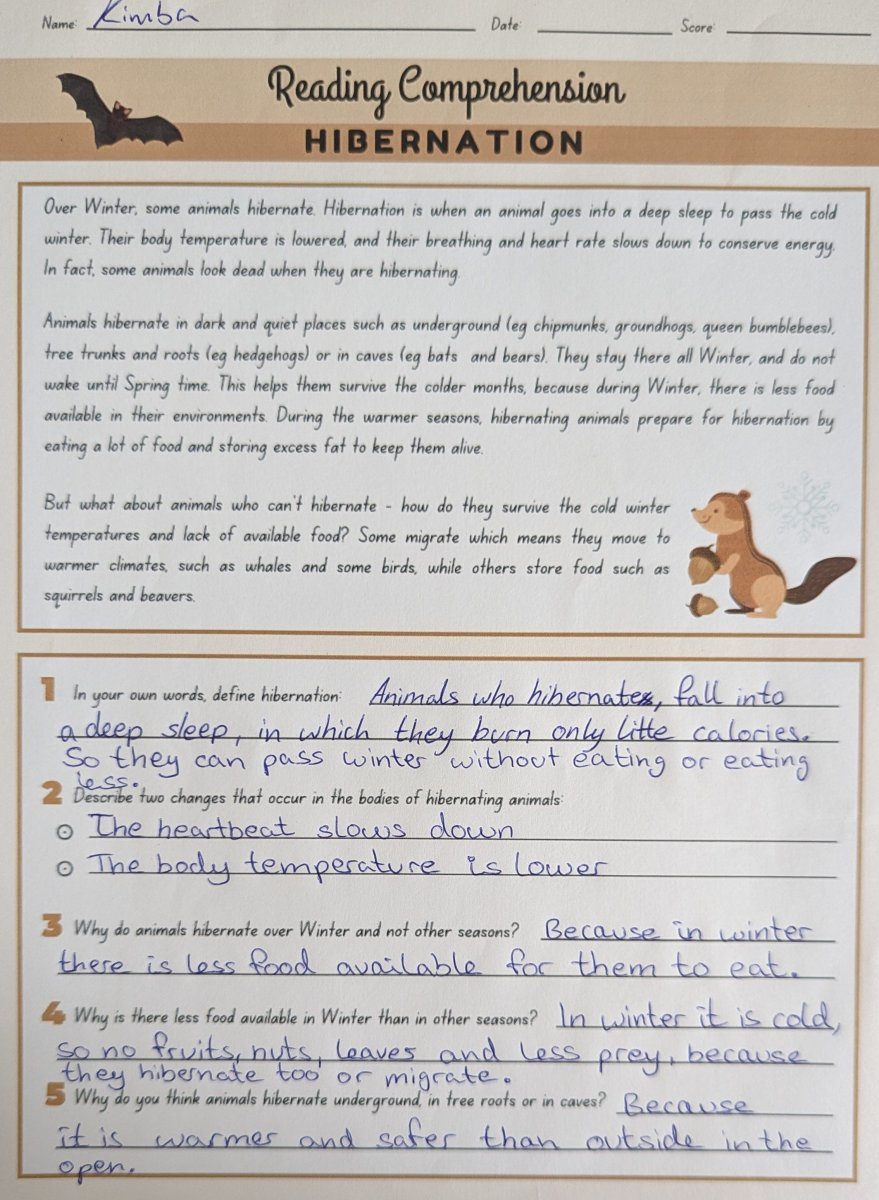 Name: Kimba Date: Score:
Reading Comprehension
HIBERNATION
Over Winter, some animals hibernate. Hibernation is when an animal goes into a deep sleep to pass the cold
winter. Their body temperature is lowered, and their breathing and heart rate slows down to conserve energy.
In fact, some animals look dead when they are hibernating.
Animals hibernate in dark and quiet places such as underground (eg chipmunks, groundhogs, queen bumblebees),
tree trunks and roots (eg hedgehogs) or in caves (eg bats and bears). They stay there all Winter, and do not
wake until Spring time. This helps them survive the colder months, because during Winter, there is less food
available in their environments. During the warmer seasons, hibernating animals prepare for hibernation by
eating a lot of food and storing excess fat to keep them alive.
But what about animals who can't hibernate - how do they survive the cold winter
temperatures and lack of available food? Some migrate which means they move to
warmer climates, such as whales and some birds, while others store food such as
squirrels and beavers.
1 In your own words, define hibernation: Animals who hibernate, fall into
a deep sleep, in which they burn only litte calories.
So they can pass winter without eating or eating
less.
2 Describe two changes that occur in the bodies of hibernating animals:
The heartbeat slows down
The body temperature is lower
3 Why do animals hibernate over Winter and not other seasons? Because in winter
there is less food available for them to eat.
4 Why is there less food available in Winter than in other seasons? In winter it is cold,
so no fruits, nuts, leaves and less prey, because
they hibernate too or migrate.
5 Why do you think animals hibernate underground, in tree roots or in caves? Because
it is warmer and safer than outside in the
open.